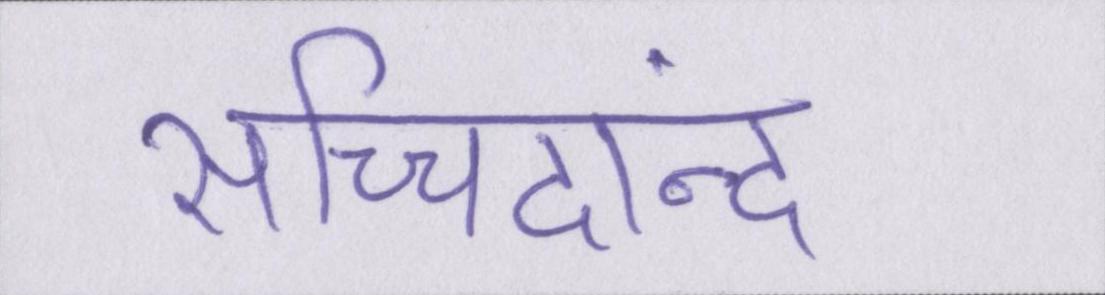 सच्चिदांन्द